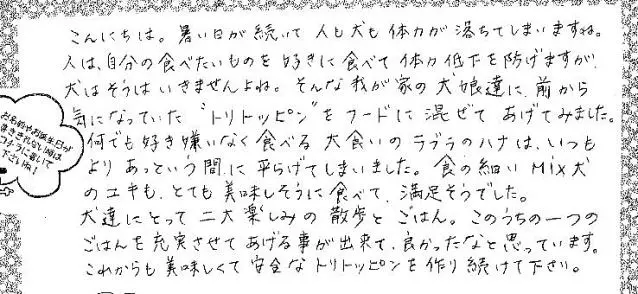 こんにちは。暑い日が続いて人も犬も体力が落ちてしまいますね。
人は、自分の食べたいものを好きに食べて体力低下を防げますが、
犬はそうはいきませんよね。そんな我が家の犬娘達に、前から
気になっていた"トリトッピン"をフードに混ぜてあげてみました。
何でも好き嫌いなく食べる大食いのラブラのハナは、いつも
よりあっという間に平らげてしまいました。食の細いMIX犬
のユキも、とても美味しそうに食べて、満足そうでした。
犬達にとって二大楽しみの散歩とごはん。このうちの一つの
ごはんを充実させてあげる事が出来て、良かったなと思っています。
これからも美味しくて安全なトリトッピンを作り続けて下さい。
お名前やお誕生日が
書ききれない時は
コチラに書いて
下さいね！